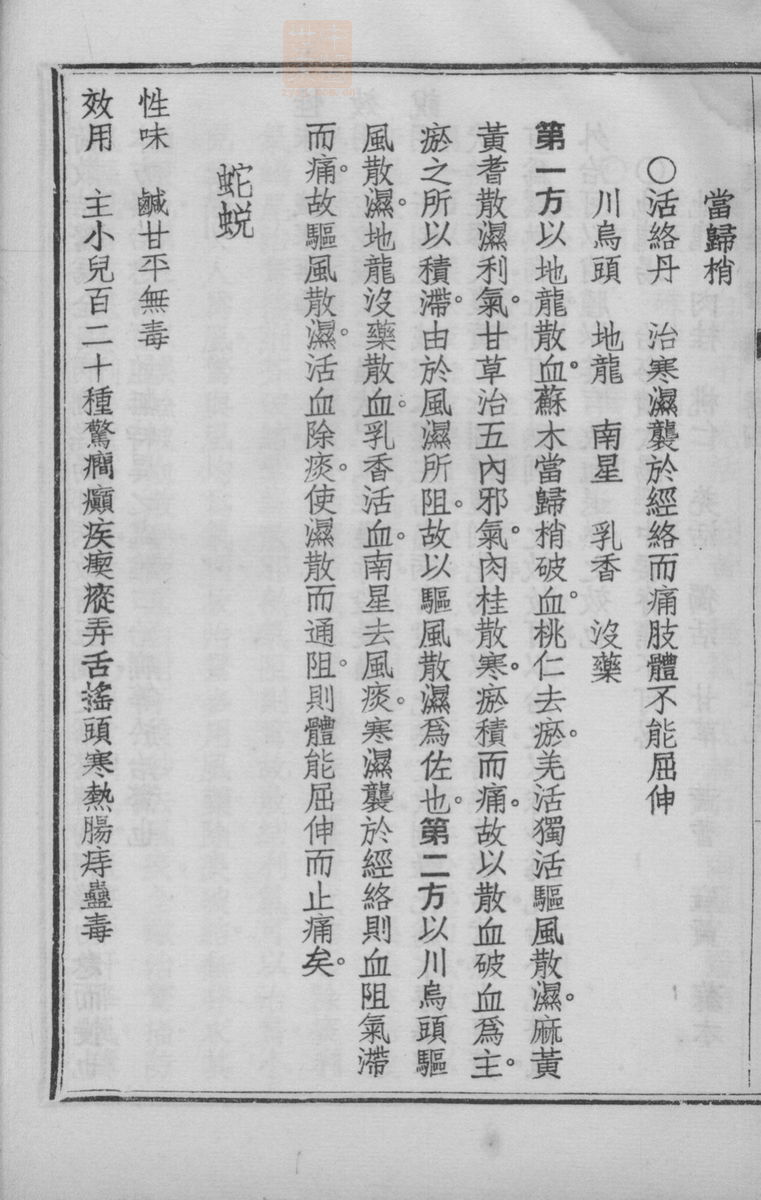 當歸梢
〇活絡丹　治寒濕襲於經絡而痛肢體不能屈伸
川烏頭　地龍　南星　乳香　沒藥
第一方以地龍散血。蘇木當歸梢破血。桃仁去瘀。羌活獨活驅風散濕。麻黃
黃耆散濕利氣。甘草治五內邪氣。肉桂散寒。瘀積而痛。故以散血破血爲主。
瘀之所以積滯。由於風濕所阻。故以驅風散濕爲佐也。第二方以川烏頭驅
風散濕。地龍沒藥散血。乳香活血。南星去風痰。寒濕襲於經絡則血阻氣滯
而痛。故驅風散濕。活血除痰。使濕散而通阻。則體能屈伸而止痛矣。
蛇蛻
性味　鹹甘平無毒
效用　主小兒百二十種驚癇癲疾瘈瘲弄舌搖頭寒熱腸痔蠱毒